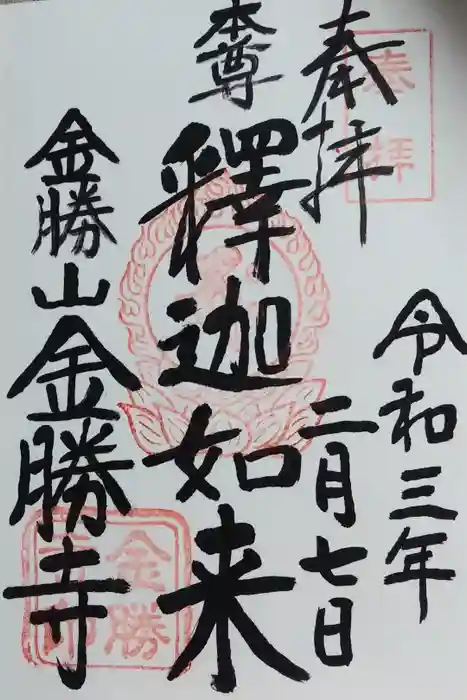 奉拝
奉拝
令和三年
二月七日
本尊
釋迦如来
金勝山金勝寺
金勝
寺印